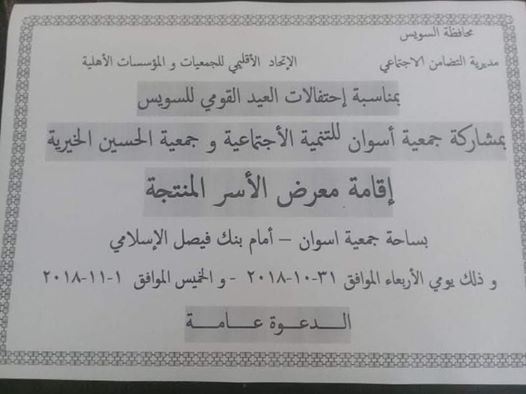 محافظة السويس
مديرية التضامن الاجتماعي الإتحاد الأقليمي للجمعيات و المؤسسات الأهلية
بمناسبة إحتفالات العيد القومي للسويس
بمشاركة جمعية أسوان للتنمية الأجتماعية و جمعية الحسين الخيرية
إقامة معرض الأسر المنتجة
بساحة جمعية اسوان – أمام بنك فيصل الإسلامي
و ذلك يومي الأربعاء الموافق ٣١-١٠-٢٠١٨ - و الخميس الموافق ١-١١-٢٠١٨
الـــدعـــوة عـــامـــة